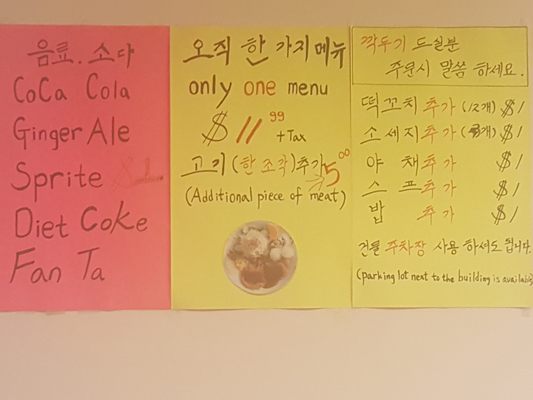 음료. 소다
CoCa Cola
Ginger Ale
Sprite $1
Diet Coke
Fan Ta
오직 한 가지 메뉴
only one menu
$ 11.99 + Tax
고기 (한 조각) 추가 5.00
(Additional piece of meat)
깍두기 드실분
주문시 말씀 하세요.
떡꼬치 추가 (1/2개) $1
소세지 추가 $1
야 채 추가 $1
스 프 추가 $1
밥 추가 $1
건물 주차장 사용 하셔도 됩니다.
(parking lot next to the building is available)